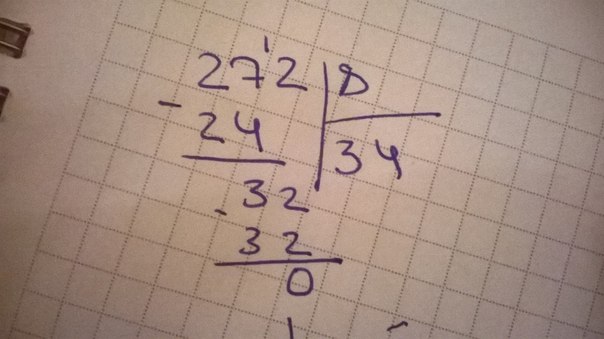 272 8
- 24 34
- 32
32
0